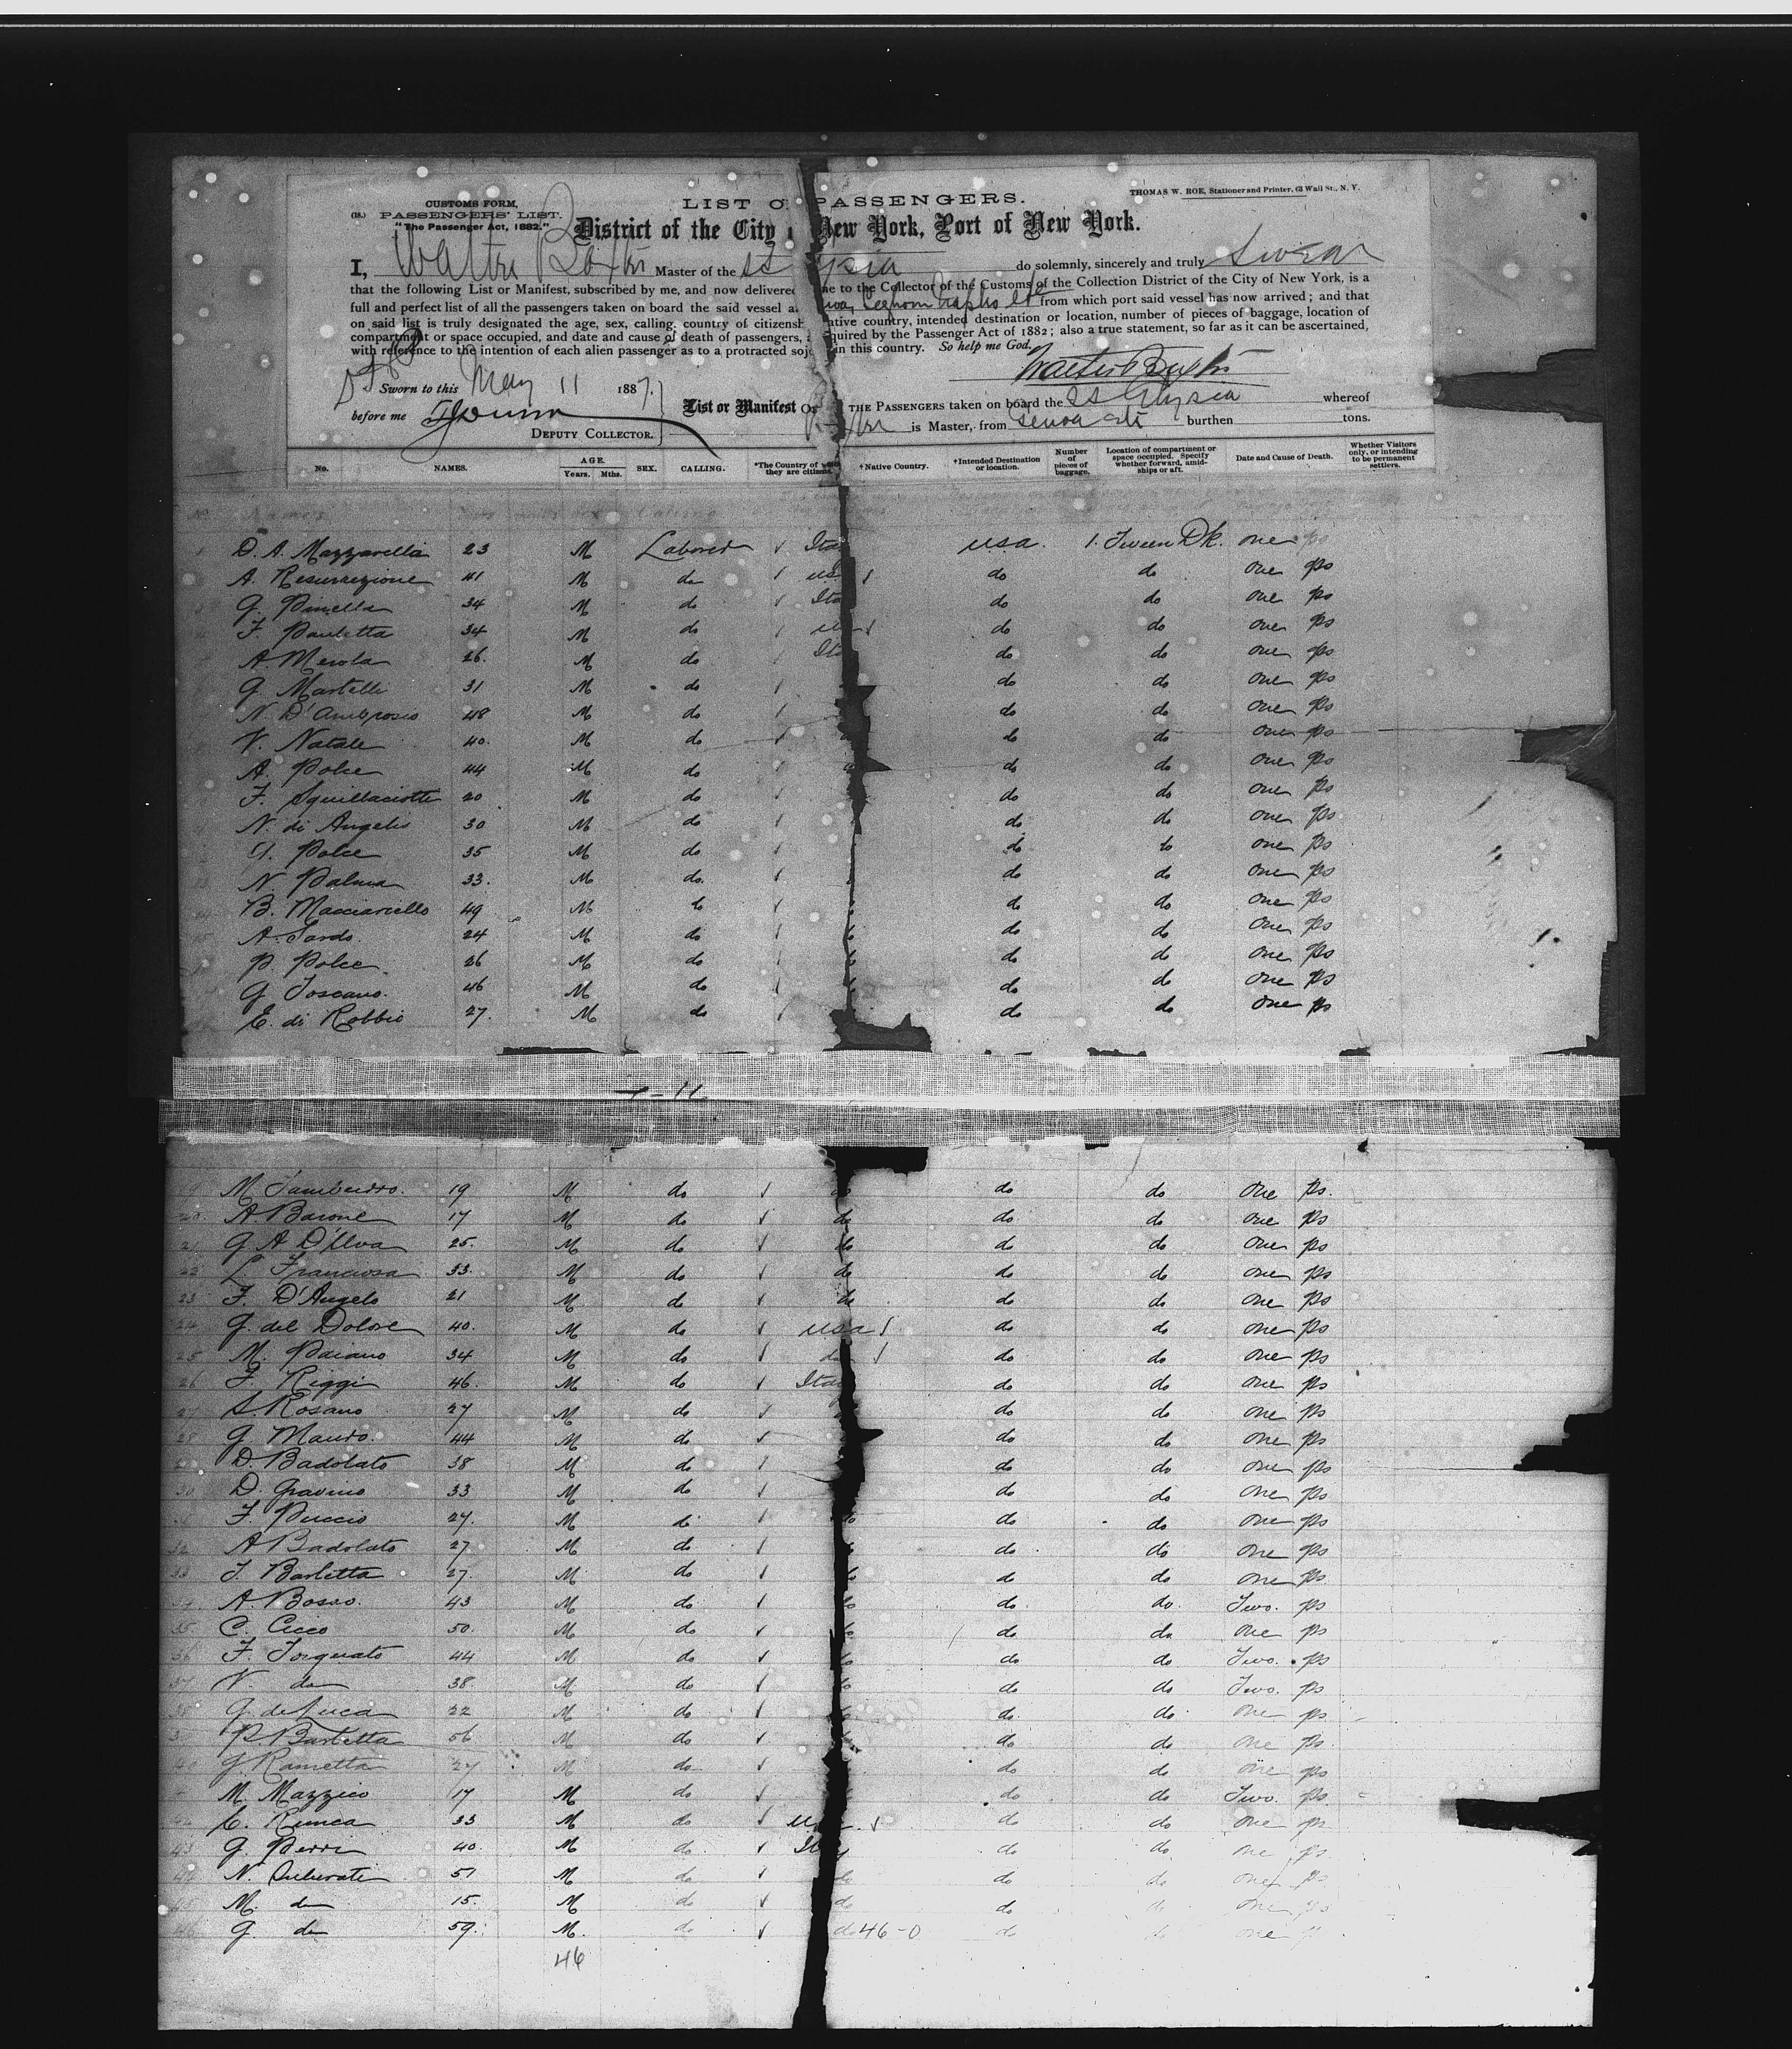 CUSTOMS FORM,
(18.) PASSENGERS' LIST.
"The Passenger Act, 1882."
LIST O PASSENGERS.
THOMAS W. ROE, Stationer and Printer, 63 Wall St., N. Y.
District of the City New York, Port of New York.
I, Walter Master of the SS ysia do solemnly, sincerely and truly Swear
that the following List or Manifest, subscribed by me, and now delivered me to the Collector of the Customs of the Collection District of the City of New York, is a
full and perfect list of all the passengers taken on board the said vessel a Leghorn Naples etc from which port said vessel has now arrived; and that
on said list is truly designated the age, sex, calling, country of citizensh ative country, intended destination or location, number of pieces of baggage, location of
compartment or space occupied, and date and cause of death of passengers, quired by the Passenger Act of 1882; also a true statement, so far as it can be ascertained,
with reference to the intention of each alien passenger as to a protracted soj in this country. So help me God.
Walter
Sworn to this May 11 1887.
before me
DEPUTY COLLECTOR.
List or Manifest OF THE PASSENGERS taken on board the SS Elysia whereof
is Master, from Genoa etc burthen tons.
No. NAMES. AGE. Years. Mths. SEX. CALLING. *The Country of which they are citizens. †Native Country. †Intended Destination or location. Number of pieces of baggage. Location of compartment or space occupied. Specify whether forward, amidships or aft. Date and Cause of Death. Whether Visitors only, or intending to be permanent settlers.
No Names Calling
D. A. Mazzarella 23 M Laborer Ita usa. 1. Tween Dk. one ps
A. Resurrezione 41 M do us do do one ps
G. Pinella 34 M do Ita do do one ps
F. Pauletta 34 M do us do do one ps
A. Merola 26. M do Ita do do one ps
G. Martelli 31 M do do do one ps
N. D'Ambrosio 48 M do do do one ps
V. Natale 40. M do do do one ps
A. Polce 44 M do do do one ps
F. Squillaciotti 20 M do do do one ps
N. di Angelis 30 M do do do one ps
G. Polce 35 M do do do one ps
N. Palma 33. M do. do do one ps
B. Macciariello 49 M do do do one ps
A. Sardo. 24 M do do do one ps
P. Polce. 26 M do do do one ps
G. Toscano. 46 M do do do one ps
E. di Robbio 27. M do do do one ps
19 M. 19 M do do do do one ps.
20. A. Barone 17 M do do do do one ps
21 G. A D'Elva 25. M do do do do one ps
22 L. Franciosa 33. M do do do do one ps
23 F. D'Angelo 21 M do do do do one ps
24 G. del Dolore 40. M do usa do do one ps
25 M. Paiano 34 M do do do do one ps
26 F. Riggi 46. M do Ita do do one ps
27 S. Rosano 27 M do do do one ps
28 G. Mauro. 44 M do do do one ps
D. Badolato 38 M do do do one ps
30 D. Gravino 33 M do do do one ps
F. Puccio 27. M do do do one ps
32 A Badolato 27 M do do do one ps
33 F. Barletta 27. M do do do one ps
A. Bosco. 43 M do do do Two. ps
35 C. Cicco 50. M do do do one ps
36 F. Torquato 44 M do do do Two. ps
37 V. do 38. M do do do Two. ps
38 G. de Luca 22 M do do do one ps
P. Barletta 56 M do do do one ps.
40 G. Rametta 27 M do do do one ps
M. Mazzeo 17 M do do do Two. ps
42 C. Runca 33 M do u do do one ps
43 G. Perri 40. M do It do do one ps
44 N. 51 M do do do do one ps
45 M. do 15. M do do do do one ps
46 G. do 59. M. do do 46-0 do do one p
46